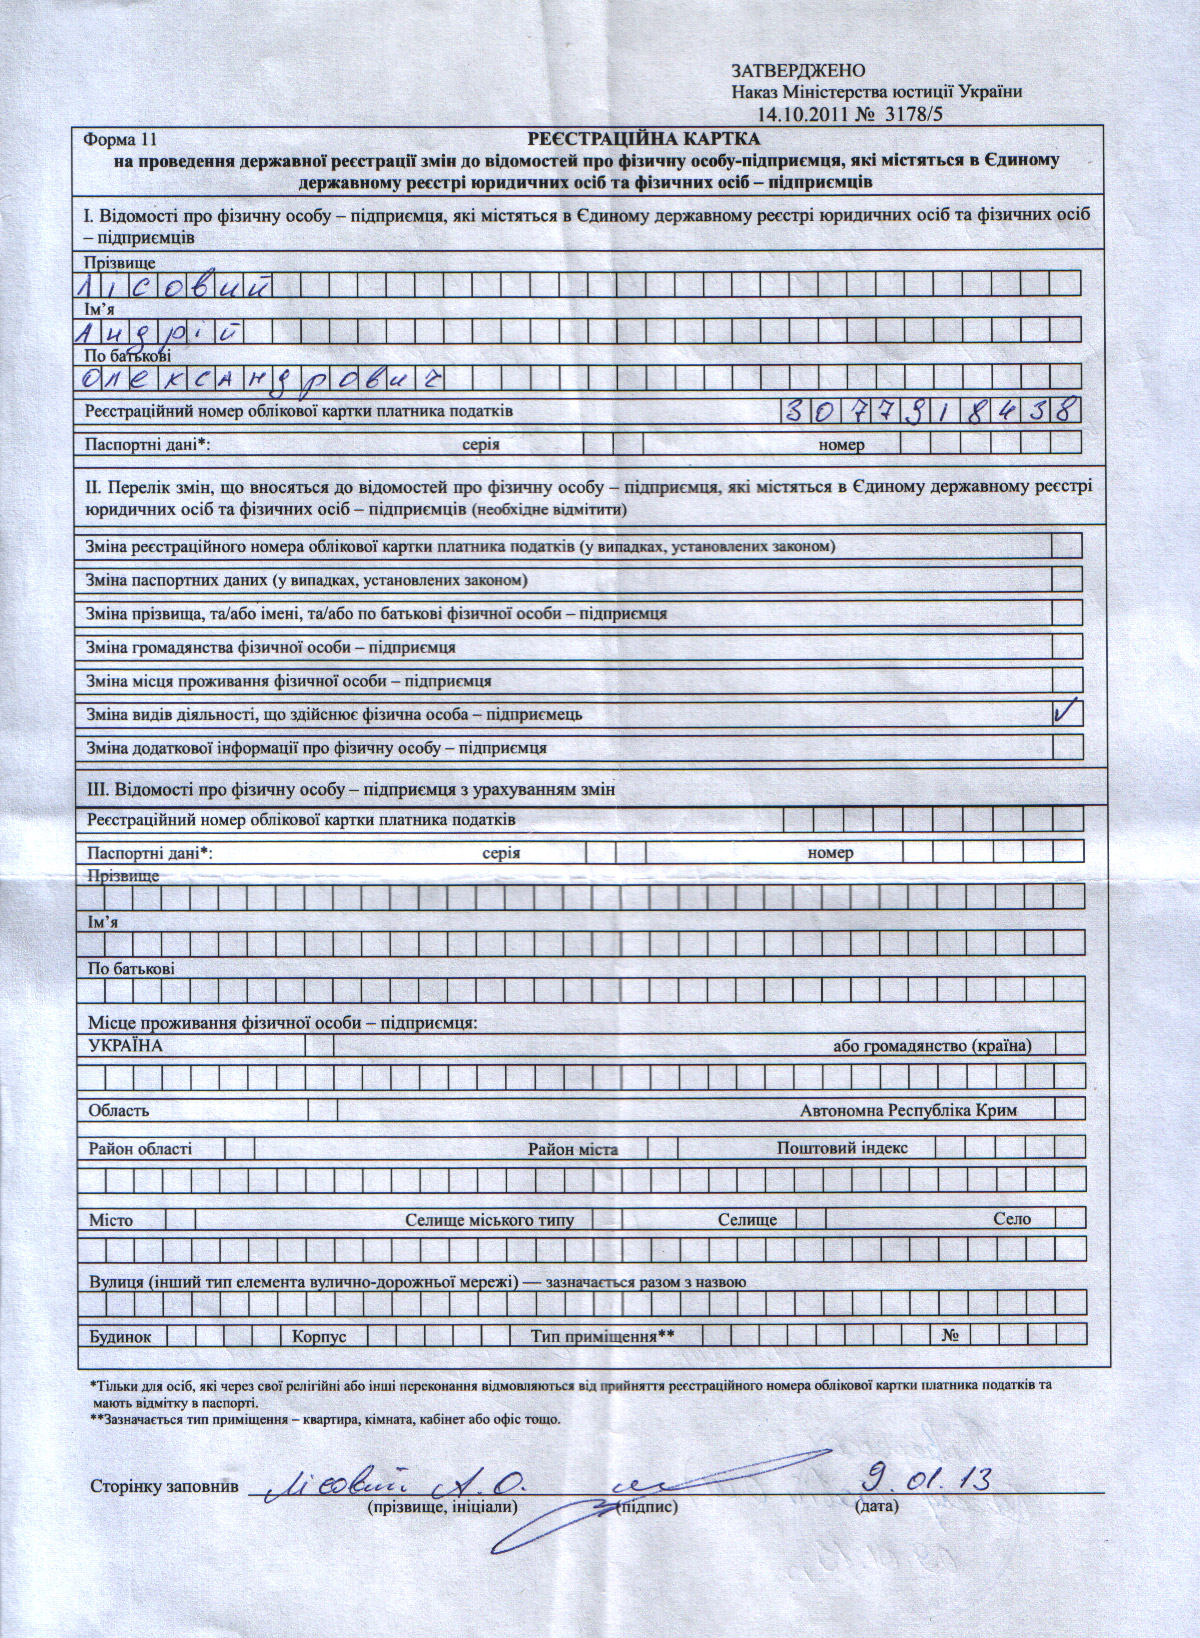 ЗАТВЕРДЖЕНО
Наказ Міністерства юстиції України
14.10.2011 № 3178/5
Форма 11 РЕЄСТРАЦІЙНА КАРТКА
на проведення державної реєстрації змін до відомостей про фізичну особу-підприємця, які містяться в Єдиному
державному реєстрі юридичних осіб та фізичних осіб – підприємців
І. Відомості про фізичну особу – підприємця, які містяться в Єдиному державному реєстрі юридичних осіб та фізичних осіб
– підприємців
Прізвище
Лісовий
Ім’я
Андрій
По батькові
Олександрович
Реєстраційний номер облікової картки платника податків 3077918438
Паспортні дані*: серія номер
ІІ. Перелік змін, що вносяться до відомостей про фізичну особу – підприємця, які містяться в Єдиному державному реєстрі
юридичних осіб та фізичних осіб – підприємців (необхідне відмітити)
Зміна реєстраційного номера облікової картки платника податків (у випадках, установлених законом)
Зміна паспортних даних (у випадках, установлених законом)
Зміна прізвища, та/або імені, та/або по батькові фізичної особи – підприємця
Зміна громадянства фізичної особи – підприємця
Зміна місця проживання фізичної особи – підприємця
Зміна видів діяльності, що здійснює фізична особа – підприємець ✓
Зміна додаткової інформації про фізичну особу – підприємця
ІІІ. Відомості про фізичну особу – підприємця з урахуванням змін
Реєстраційний номер облікової картки платника податків
Паспортні дані*: серія номер
Прізвище
Ім’я
По батькові
Місце проживання фізичної особи – підприємця:
УКРАЇНА або громадянство (країна)
Область Автономна Республіка Крим
Район області Район міста Поштовий індекс
Місто Селище міського типу Селище Село
Вулиця (інший тип елемента вулично-дорожньої мережі) — зазначається разом з назвою
Будинок Корпус Тип приміщення** №
*Тільки для осіб, які через свої релігійні або інші переконання відмовляються від прийняття реєстраційного номера облікової картки платника податків та
мають відмітку в паспорті.
**Зазначається тип приміщення – квартира, кімната, кабінет або офіс тощо.
Сторінку заповнив Лісовий А.О. 9.01.13
(прізвище, ініціали) (підпис) (дата)